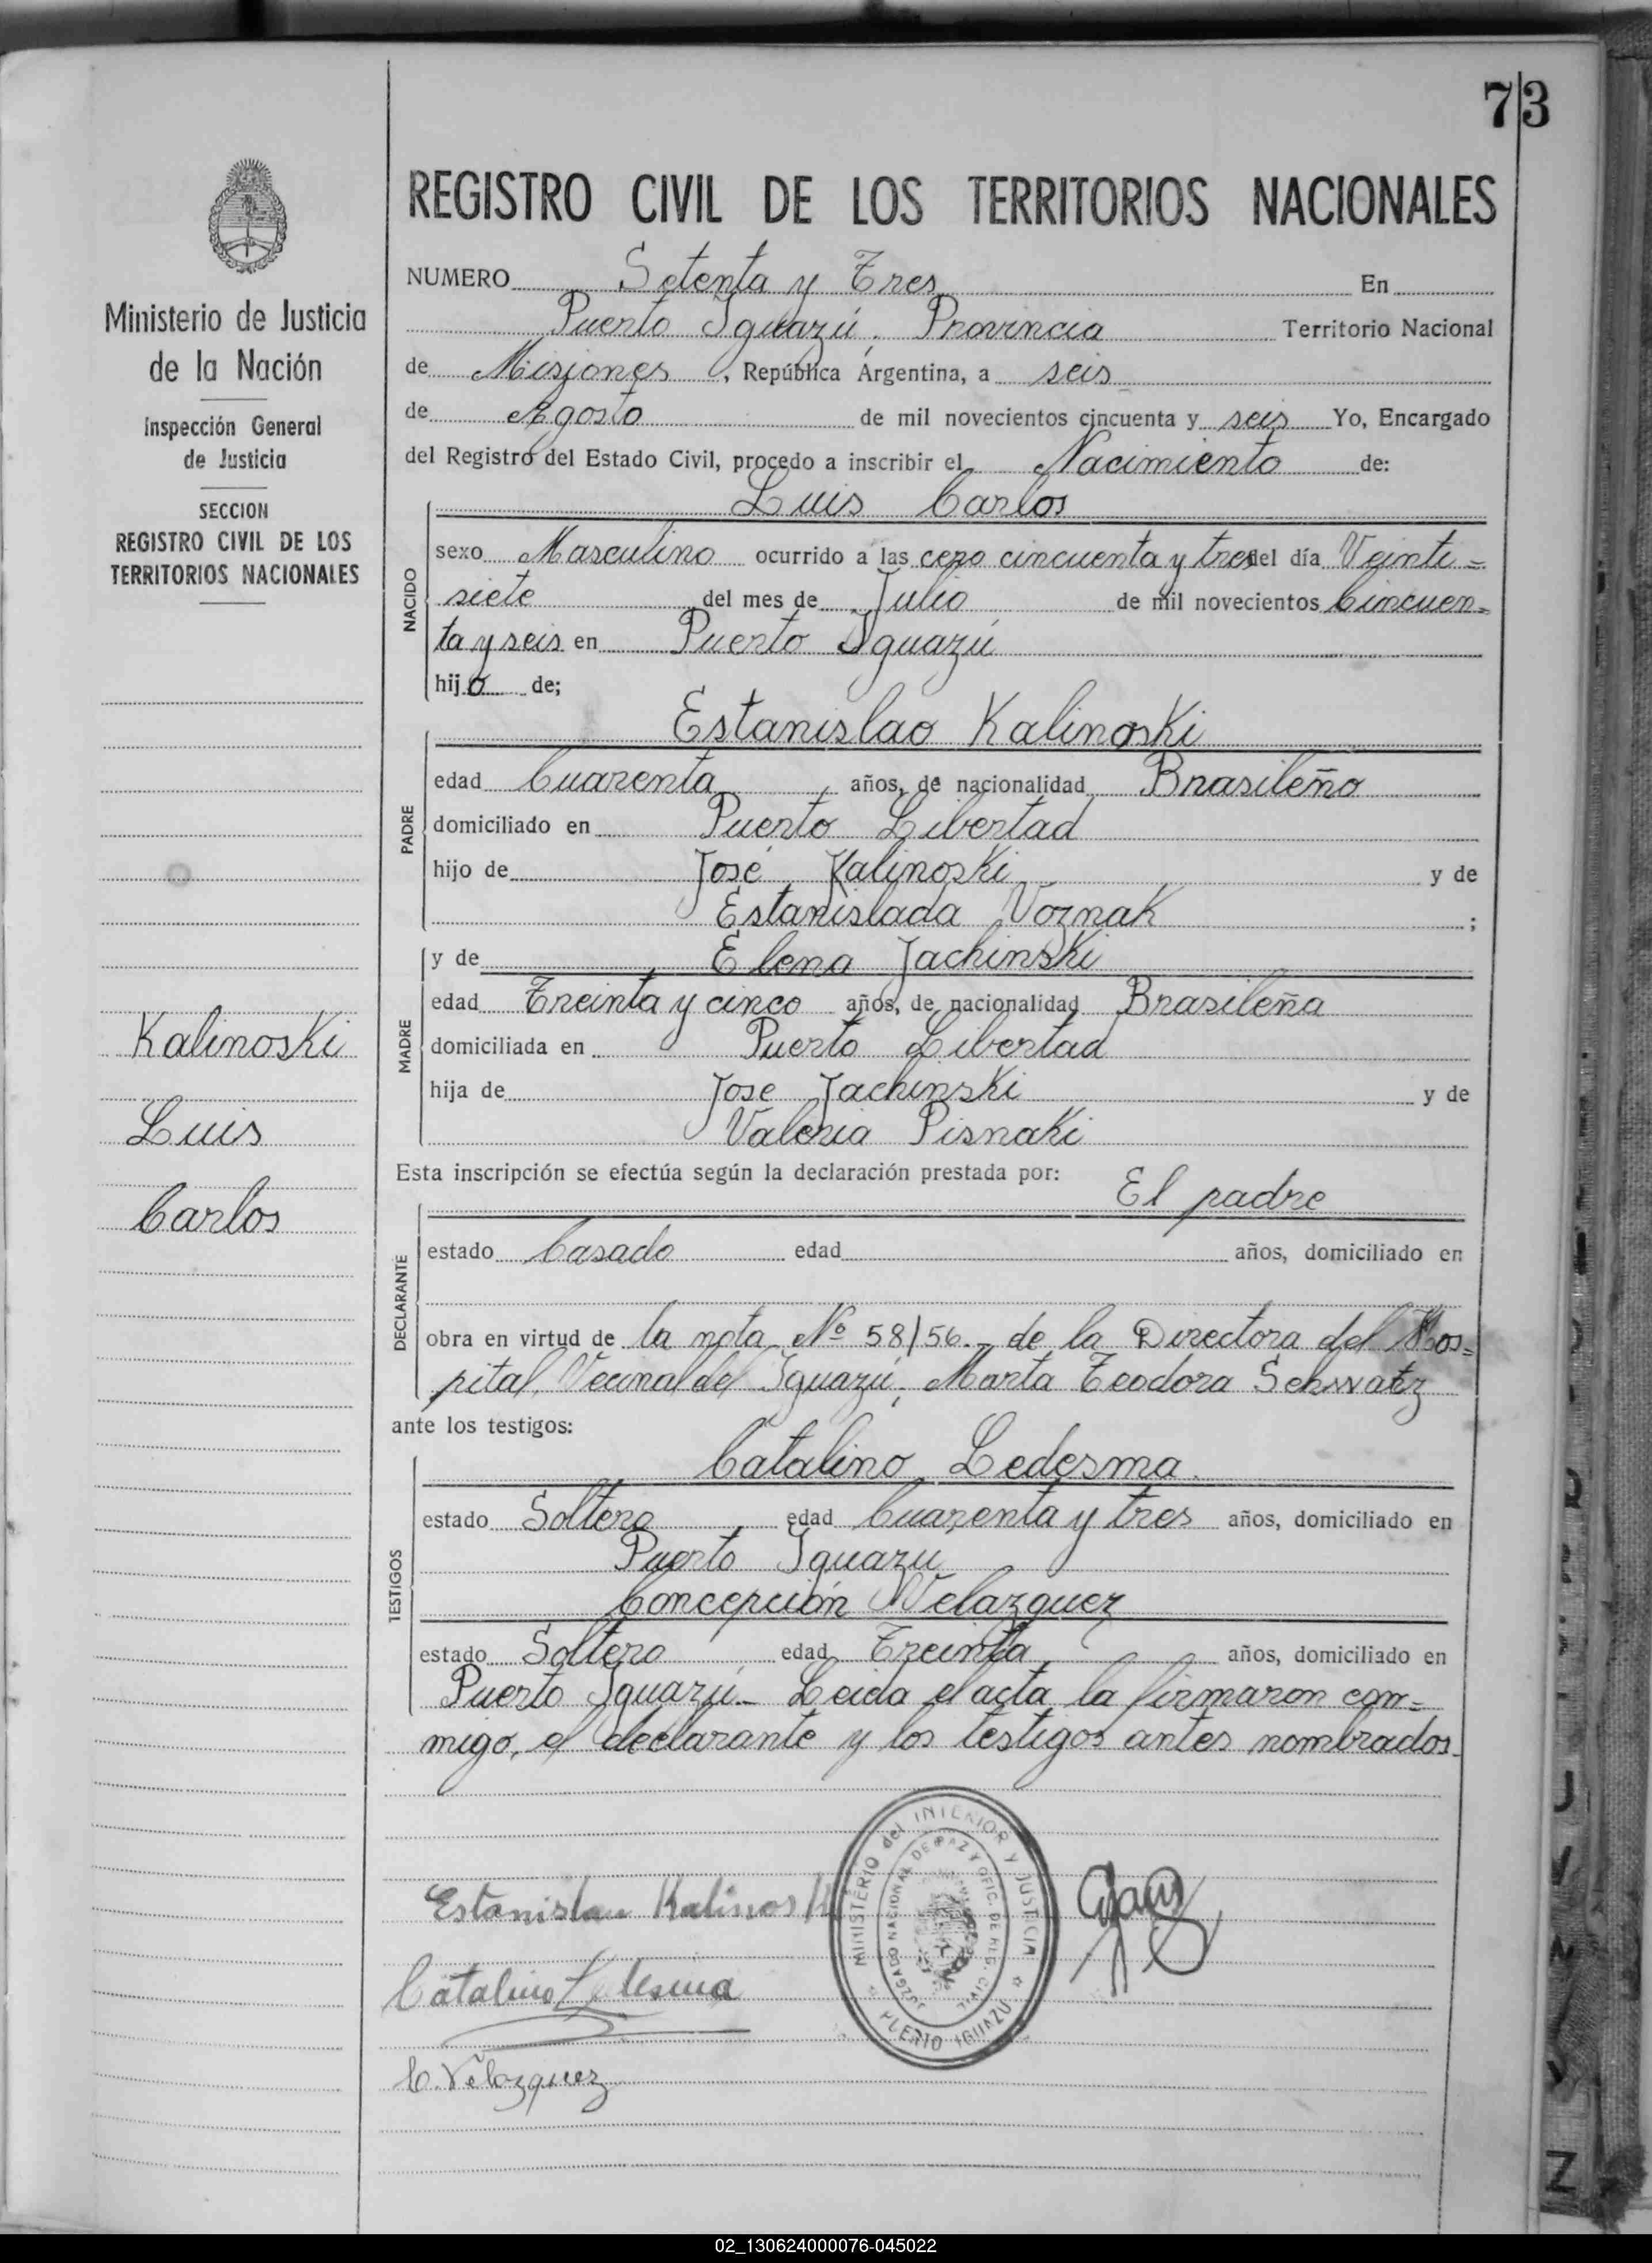 73
Ministerio de Justicia
de la Nación
Inspección General
de Justicia
SECCION
REGISTRO CIVIL DE LOS
TERRITORIOS NACIONALES
Kalinoski
Luis
Carlos
REGISTRO CIVIL DE LOS TERRITORIOS NACIONALES
NUMERO Setenta y Tres En
Puerto Iguazú, Provincia Territorio Nacional
de Misiones, República Argentina, a seis
de Agosto de mil novecientos cincuenta y seis Yo, Encargado
del Registro del Estado Civil, procedo a inscribir el Nacimiento de:
NACIDO
Luis Carlos
sexo Masculino ocurrido a las cero cincuenta y tres del día Veinti=
siete del mes de Julio de mil novecientos Cincuen=
ta y seis en Puerto Iguazú
hijo de;
PADRE
Estanislao Kalinoski
edad Cuarenta años, de nacionalidad Brasileño
domiciliado en Puerto Libertad
hijo de José Kalinoski y de
Estanislada Voznak ;
MADRE
y de Elena Jachinski
edad Treinta y cinco años, de nacionalidad Brasileña
domiciliada en Puerto Libertad
hija de Jose Jachinski y de
Valeria Pisnaki
Esta inscripción se efectúa según la declaración prestada por:
DECLARANTE
El padre
estado Casado edad años, domiciliado en
obra en virtud de la nota Nº 58/56.- de la Directora del Hos=
pital Vecinal del Iguazú, Marta Teodora Schwatz
ante los testigos:
TESTIGOS
Catalino Ledesma.
estado Soltero edad Cuarenta y tres años, domiciliado en
Puerto Iguazu
Concepción Velazquez
estado Soltero edad Treinta años, domiciliado en
Puerto Iguazú.- Leida el acta la firmaron con=
migo, el declarante y los testigos antes nombrados.
Estanislau Kalinoski
Catalino Ledesma
C. Velazquez
MINISTERIO del INTERIOR Y JUSTICIA
JUZGADO NACIONAL DE PAZ Y OFIC. DE REG. CIVIL
PUERTO IGUAZU
02_130624000076-045022